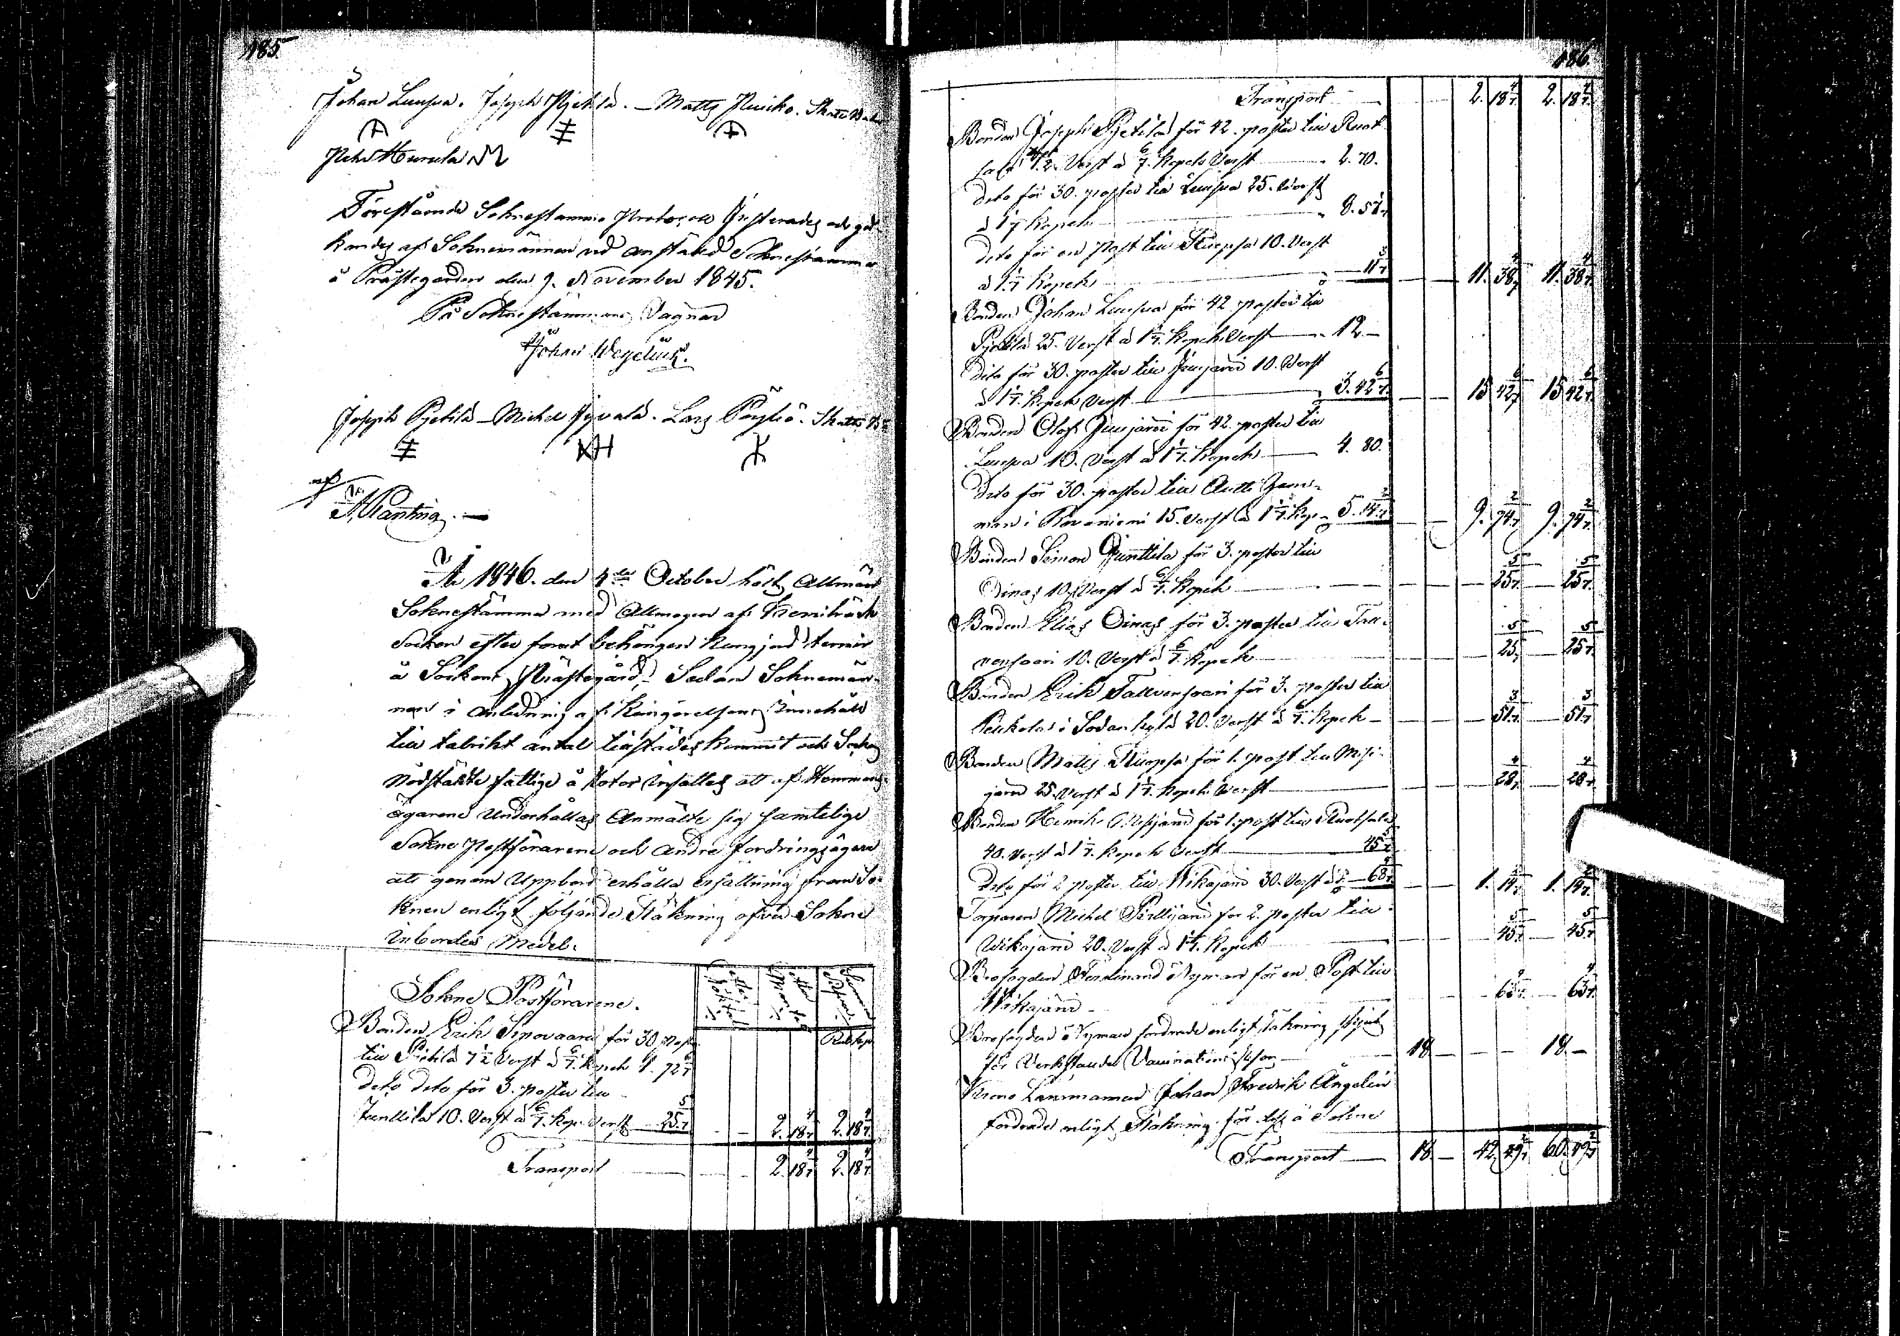 185.
Johan Luusua. Joseph Pjetilä. Matts Ruicka.
Petr Hurula
Förestående Soknestämmo Protocoll Justerades och god-
kändes af Soknemännen vid anstäld Sokne stämma
å Prästegården den 9. November 1845.
På Sokne stämmans Vägnar
Johan Wegelius.
Joseph Pjetilä – Michel Jyvälä. Lars Pöyliö.
År 1846. den 4de October hölts Allmän
Sokne stämma med Allmogen af Kemiträsk
Socken efter förut behörigen kungjord termin
å Sockens Prästegård. Sedan Soknemän-
nen i anledning af Kungörelsens innehåll
till talrikt antal tillstädes kommit och Soknes
Nödstälte fattige å Rotor införts att af Hemmans-
egarene Underhållas Anmälte sig samtelige
Sokne Postförarene och andre fordringsägare
att genom Uppbörd erhålla ersättning från So-
knen enligt följande Räkning öfver Sokne
Utbordes Medel.
Sokne Postförarene.
Bonden Erik Sipovaara för 30 post
till Pjetilä 7½ Verst à 6/7 Kopek 1. 92 6/7
dito dito för 3. poster till
Junttila 10. Verst à 6/7 Kop. Verst 25 5/7 2. 18 4/7 2. 18 4/7
Transport 2. 18 4/7 2. 18 4/7
186.
Transport 2. 18 4/7 2. 18 4/7
Bonden Joseph Pjetilä för 42. poster till Ruot-
sala 7½ Verst à 6/7 Kopek Verst 2. 70.
dito för 30. poster till Luusua 25. Verst
à 1 1/7 Kopek 8. 57 1/7
dito för en Post till Kurpsa 10. Verst
à 1 1/7 Kopek 11 3/7 11. 38 4/7 11. 38 4/7
Bonden Johan Luusua för 42 poster till
Pjetilä 25. Verst à 1 1/7 Kopek Verst 12 –
dito för 30. poster till Juujärvi 10. Verst
à 1 1/7 Kopek Verst 3. 42 6/7 15 42 6/7 15 42 6/7
Bonden Olof Juujärvi för 42. poster till
Luusua 10. Verst à 1 1/7 Kopek 4. 80.
dito för 30. poster till Antti Jam-
man i Rovaniemi 15. Verst à 1 1/7 Kop. 5. 14 2/7 9. 94 2/7 9. 94 2/7
Bonden Simon Junttila för 3. poster till
Oinas 10. Verst à 6/7 Kopek 25 5/7 25 5/7
Bonden Elias Oinas för 3. poster till Tall-
vensaari 10. Verst à 6/7 Kopek 25 5/7 25 5/7
Bonden Erik Tallvensaari för 3. poster till
Pelkola i Sodankylä 20. Verst à 6/7 Kopek 51 3/7 51 3/7
Bonden Matts Kurpsa för 1. post till Misi-
järvi 25. Verst à 1 1/7 Kopek Verst 28 4/7 28 4/7
Bonden Henrik Misijärvi för 1. post till Ruotsala
40. Verst à 1 1/7 Kopek Verst 45 5/7
dito för 2 poster till Vikajärvi 30. Verst 68 4/7 1. 14 2/7 1. 14 2/7
Torparen Michel Pirttijärvi för 2. poster till
Vikajärvi 20. Verst à 1 1/7 Kopek 45 5/7 45 5/7
Brofogden Ferdinand Nyman för en Post till
Vikajärvi
Brofogden Nyman fordrade enligt räkning
för Verkstälde Vaccinations 18 – – 18 –
Krono Länsmannen Johan Fredrik Ångelin
fordrade enligt Räkning för å Sokne
Transport 18 – 42. 49 2/7 60. 49 2/7